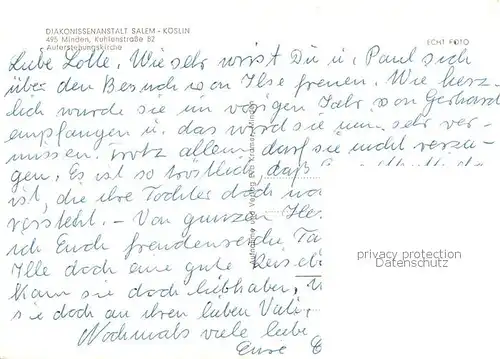 DIAKONISSENANSTALT SALEM - KÖSLIN
495 Minden, Kuhlenstraße 82
Auferstehungskirche
ECHT FOTO
Liebe Lotte, Wie sehr wirst Du u. Paul sich
über den Besuch von Ilse freuen. Wie herz-
lich wurde sie im vorigen Jahr von Gerhard
empfangen u. das wird sie nun sehr ver-
missen. Trotz allem darf sie nicht verza-
gen. Es ist so tröstlich, daß
ist, die ihre Tochter doch
versteht. - Von ganzen
ich Euch freudenreiche Ta
Ilse doch eine gute
Kann sie doch liebhaben,
sie doch an ihren lieben Vati,
Nochmals viele liebe
Eure
privacy protection
Datenschutz